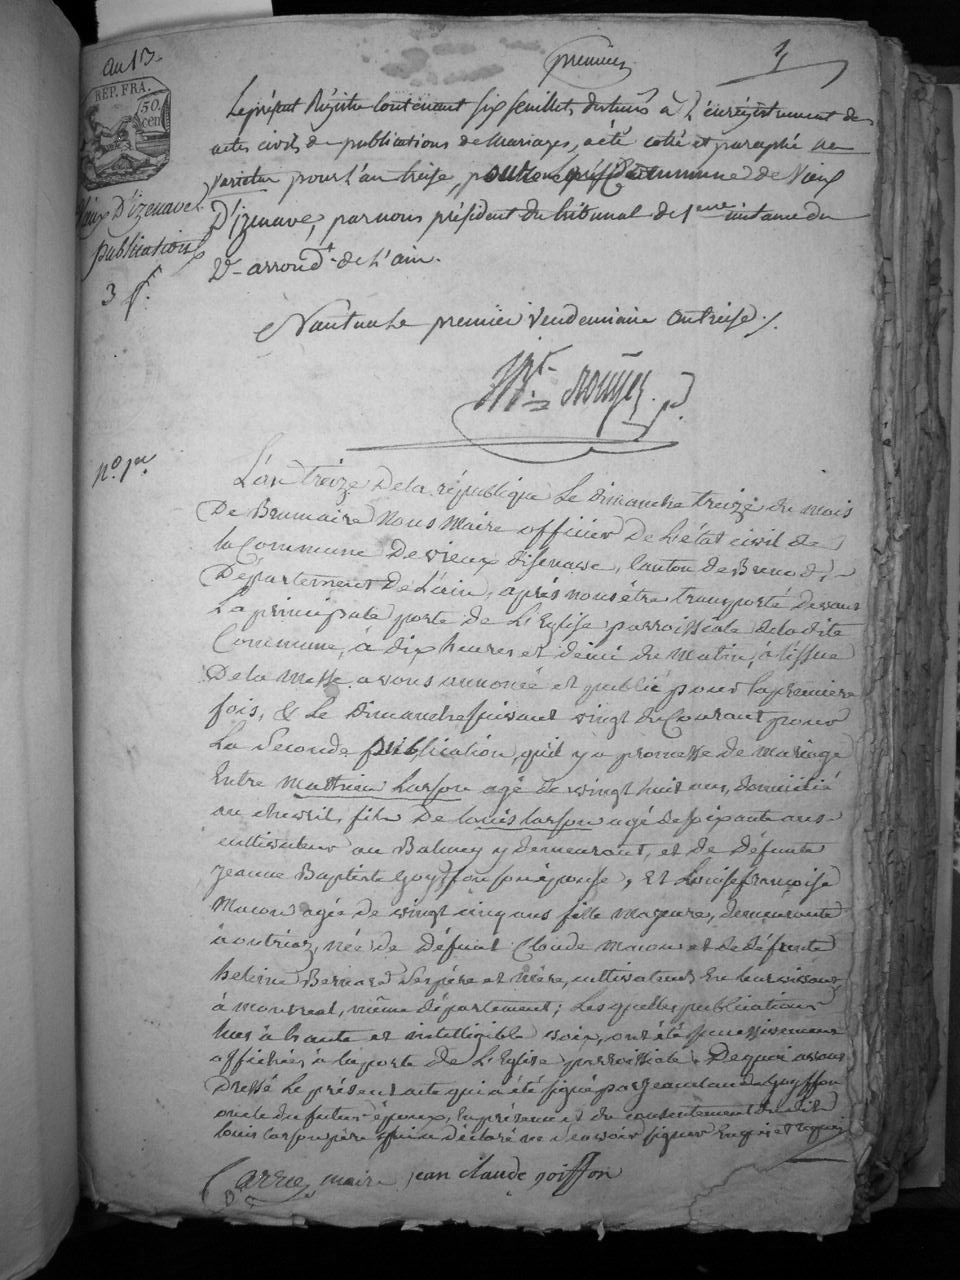 premier
1
an 13.
REP. FRA.
50. cen
Le présent Régistre Contenant six feuillets, destinés à L'enrégistrement des
actes civils de publications de Mariages, a été cotté et paraphé ne
Varietur pour L'an treise, pour la Commune de Vieux
D'izenave, par nous président du tribunal de 1ere instance du
arrond.t de L'ain.
Vieux D'izenave
publications
3 f.
Nantua Le premier Vendemiaire an treise
N.o 1er
L'an treize De la république Le dimanche treize du mois
De Brumaire Nous Maire officier De L'état civil de
la Commune De vieux disenave, Canton de Brenod,
Département De L'ain, après nous être transporté devant
La principale porte de L'Eglise parroissiale de la dite
Commune, à dix heures et demi du matin, à l'issue
De la Messe avons annoncé et publié pour la première
fois, & Le dimanche suivant vingt du Courant pour
La Seconde publication, qu'il y a promesse de mariage
Entre Mathieu Larson agé de vingt huit ans, domicilié
au chevril, fils De Louis Larson agé de soixante ans
cultivateur au Balmey y demeurant, et de défunte
Jeanne Baptiste goyffon son épouse, Et Louise françoise
Macon agée de vingt cinq ans fille majeure, demeurante
à outriaz, née de Défunt Claude Macon et de défunte
helenne Bernard Ses père et mère, cultivateurs En leur vivant
à montreal, même département; Les quelles publications
lues à haute et intelligible voix, ont été successivement
affichées à la porte de L'Eglise parroissiale. De quoi avons
Dressé Le présent acte qui a été signé par jean claude Goyffon
oncle du futur époux, En présence et du consentement du dit
Louis Larson père qui a déclaré ne savoir signer Enquis et requis
Carrier maire jean claude goiffon